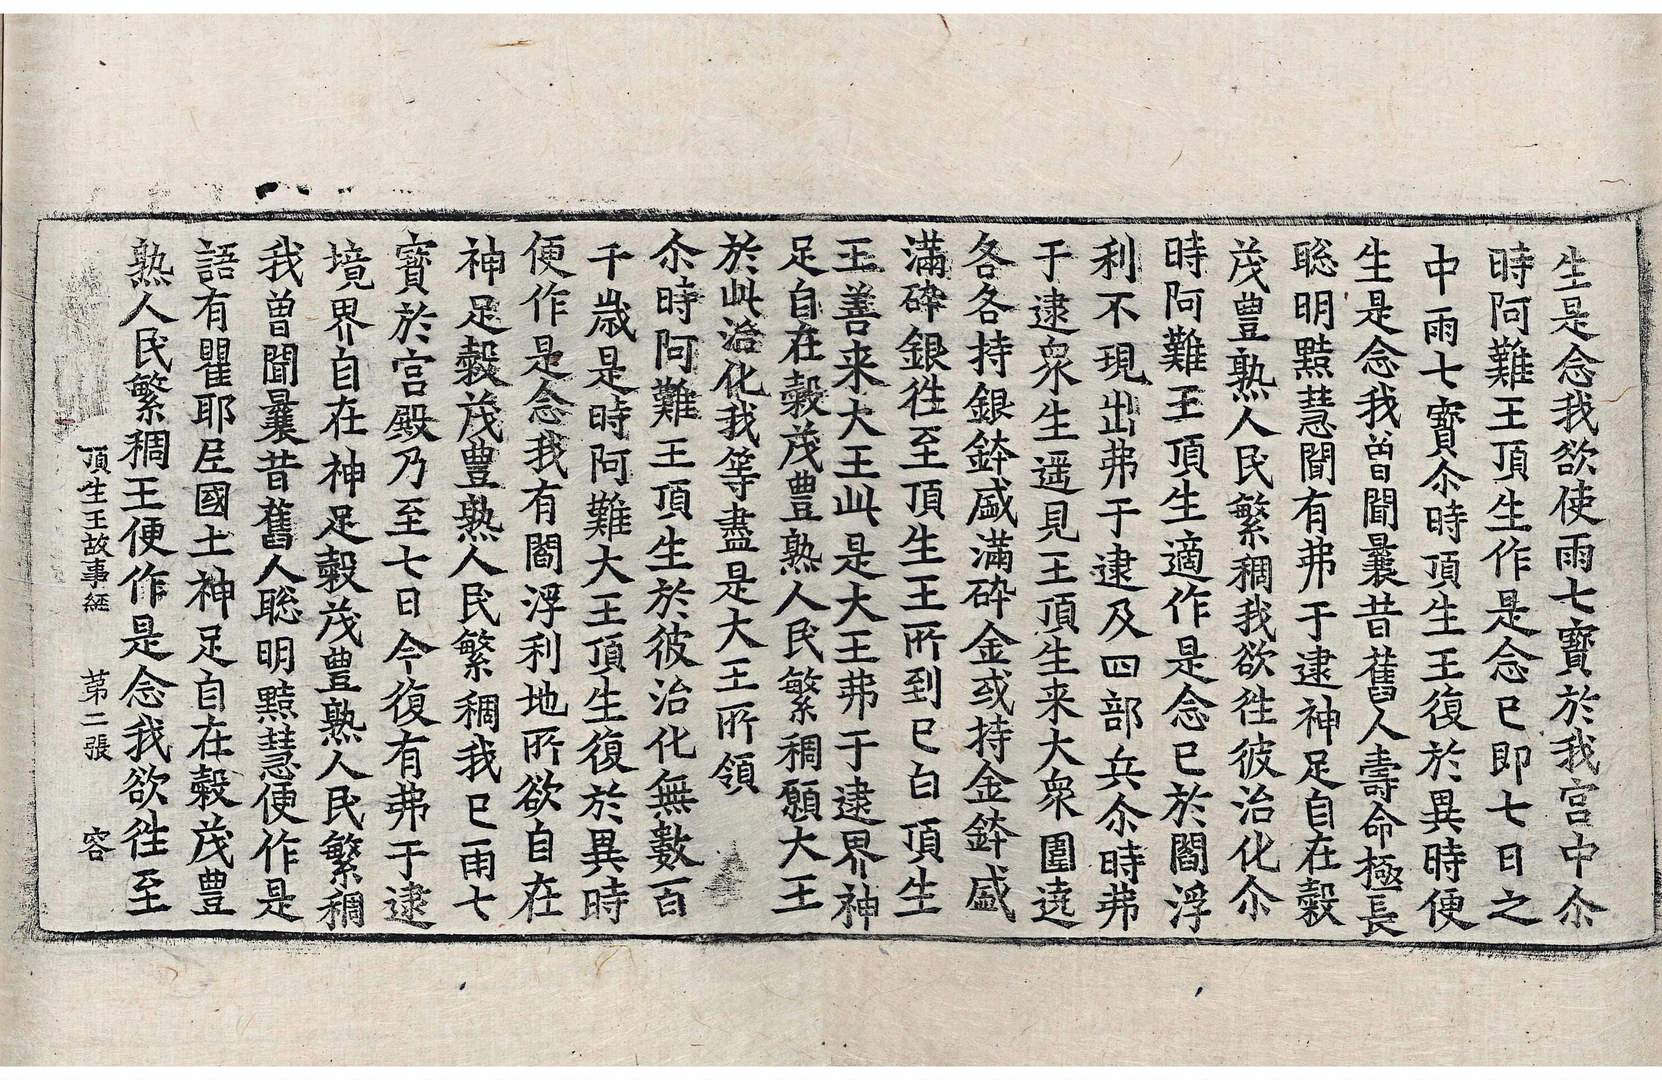 生是念我欲使雨七寶於我宮中尒
時阿難王頂生作是念已即七日之
中雨七寶尒時頂生王復於異時便
生是念我曽聞曩昔舊人壽命極長
聡明黠慧閻有弗于逮神足自在穀
茂豊熟人民繁稠我欲徃彼治化尒
時阿難王頂生適作是念已於閻浮
利不現出弗于逮及四部兵尒時弗
于逮衆生遥見王頂生来大衆圍遶
各各持銀鉢盛滿碎金或持金鉢盛
滿碎銀徃至頂生王所到已白頂生
王善来大王此是大王弗于逮界神
足自在穀茂豊熟人民繁稠願大王
於此治化我等盡是大王所領
尒時阿難王頂生於彼治化無數百
千歳是時阿難大王頂生復於異時
便作是念我有閻浮利地所欲自在
神足穀茂豊熟人民繁稠我已雨七
寶於宮殿乃至七日今復有弗于逮
境界自在神足穀茂豊熟人民繁稠
我曽聞曩昔舊人聡明黠慧便作是
語有瞿耶尼國土神足自在穀茂豊
熟人民繁稠王便作是念我欲徃至
頂生王故事経 苐二張 容